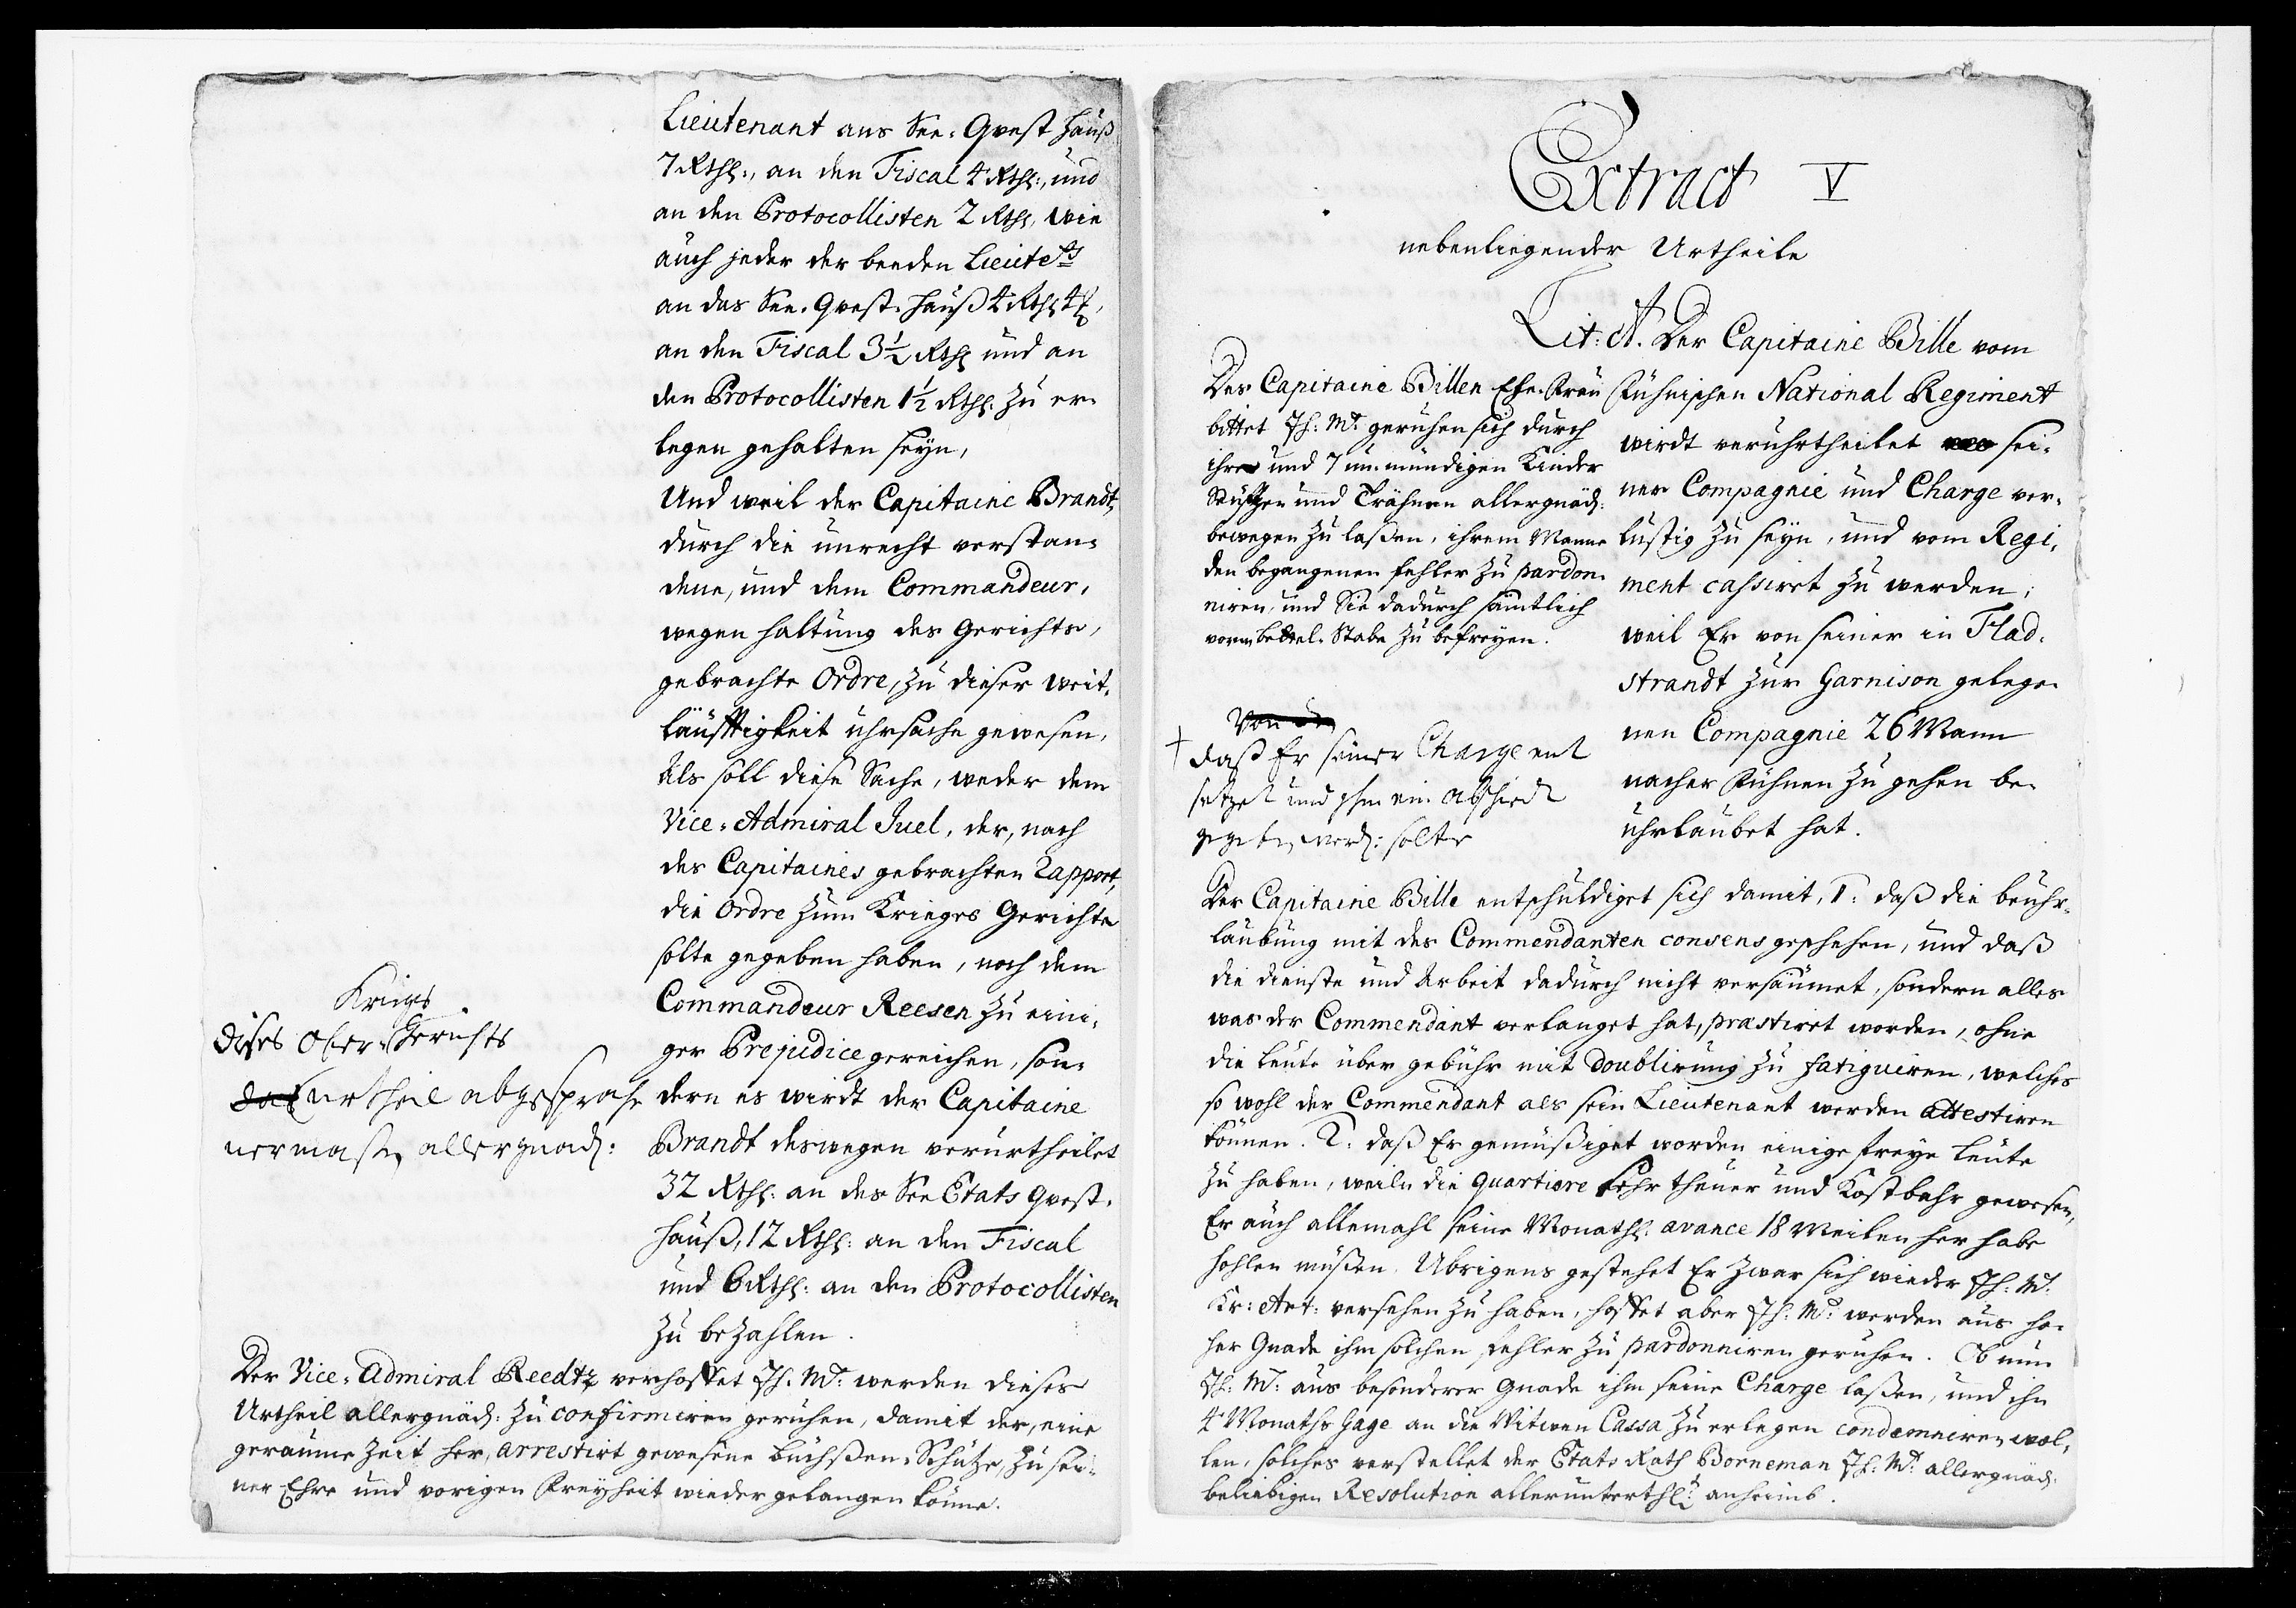 Lieutenant ans See-Qvest Hauß
7 Rthl:, an den Fiscal 4 Rthl:, und
an den Protocollisten 2 Rthl, wie
auch jeder der beeden Lieutets
an das See-Qvest-Hauß 4 Rthl 4 ß,
an den Fiscal 3½ Rthl und an
den Protocollisten 1½ Rthl: zu er-
legen gehalten seyn,
Und weil der Capitaine Brandt,
durch die unrecht verstan-
dene, und dem Commandeur,
wegen haltung des Gerichts,
gebrachte Ordre, zu dieser weit-
läufftigkeit uhrsache gewesen,
Als soll diese Sache, weder dem
Vice-Admiral Juel, der, nach
des Capitaines gebrachten Rapport,
die Ordre zum Krieges Gerichte
solte gegeben haben, noch dem
Commandeur Reesen zu eini-
ger Prejudice gereichen, son-
dern es wirdt der Capitaine
Brandt deswegen verurtheilet
32 Rthl: an des See Etats Qvest-
Hauß, 12 Rthl: an den Fiscal
und 6 Rthl: an den Protocollisten
zu bezahlen.
Krigs
Dises Ober-Gerichts
das urtheil abgesproche
nermaßen allergnäd:
Der Vice-Admiral Reedtz verhoffet Ih. Mt: werden dieses
Urtheil allergnäd: zu confirmiren geruhen, damit der, eine
geraume Zeit her, arrestirt gewesene Büchssen-Schütze, zu sei-
ner Ehre und vorigen Freyheit wieder gelangen könne.
Extract V
nebenliegender Urtheile
Lit: A. Der Capitaine Bille vom
Fühnischen National Regiment
wirdt veruhrtheilet sei-
ner Compagnie und Charge ver-
lustig zu seyn, und vom Regi-
ment cassiret zu werden;
weil Er von seiner in Flad-
strandt zur Garnison gelege-
nen Compagnie 26 Mann
nacher Fühnen zu gehen be-
uhrlaubet hat.
Des Capitaine Billen Ehe-Frau
bittet Ih: Mt. geruhen sich durch
ihre und 7 un-mündigen Kinder
Seüffzen und Trähnen allergnäd:
bewegen zu laßen, ihrem Manne
den begangenen fehler zu pardon-
niren, und Sie dadurch sämtlich
vorm bettel-Stabe zu befreyen.
Von
† daß Er seiner Charge ent
setzet und ihm ein Abschiedt
gegeben werd: solte
Der Capitaine Bille entschuldiget sich damit, 1: daß die beuhr-
laubung mit des Commendanten consens geschehen, und daß
die dienste und Arbeit dadurch nicht versäumet, sondern alles
was der Commendant verlanget hat, præstiret worden, ohne
die Leute über gebühr mit Doublirung zu fatiguiren, welches
so wohl der Commendant als sein Lieutenant werden attestiren
können. 2: daß Er gemüßiget worden einige freye Leute
zu haben, weiln die Quartiere sehr theuer und Kostbahr gewesen,
Er auch allemahl seine Monathl: avance 18 Meilen her habe
hohlen müßen. Ubrigens gestehet Er zwar sich wieder Ih: Mt.
Kr: Art: versehen zu haben, hoffet aber Ih: Mt: werden aus ho-
her Gnade ihm solchen fehler zu pardonniren geruhen. Ob nun
Ih: Mt: aus besonderer Gnade ihm seine Charge laßen, und ihn
4 Monaths Gage an die Witwen Cassa zu erlegen condemniren wol-
len, solches verstellet der Etats Rath Borneman Ih: Mt: allergnäd:
beliebigen Resolution allerunterthl: anheimb.